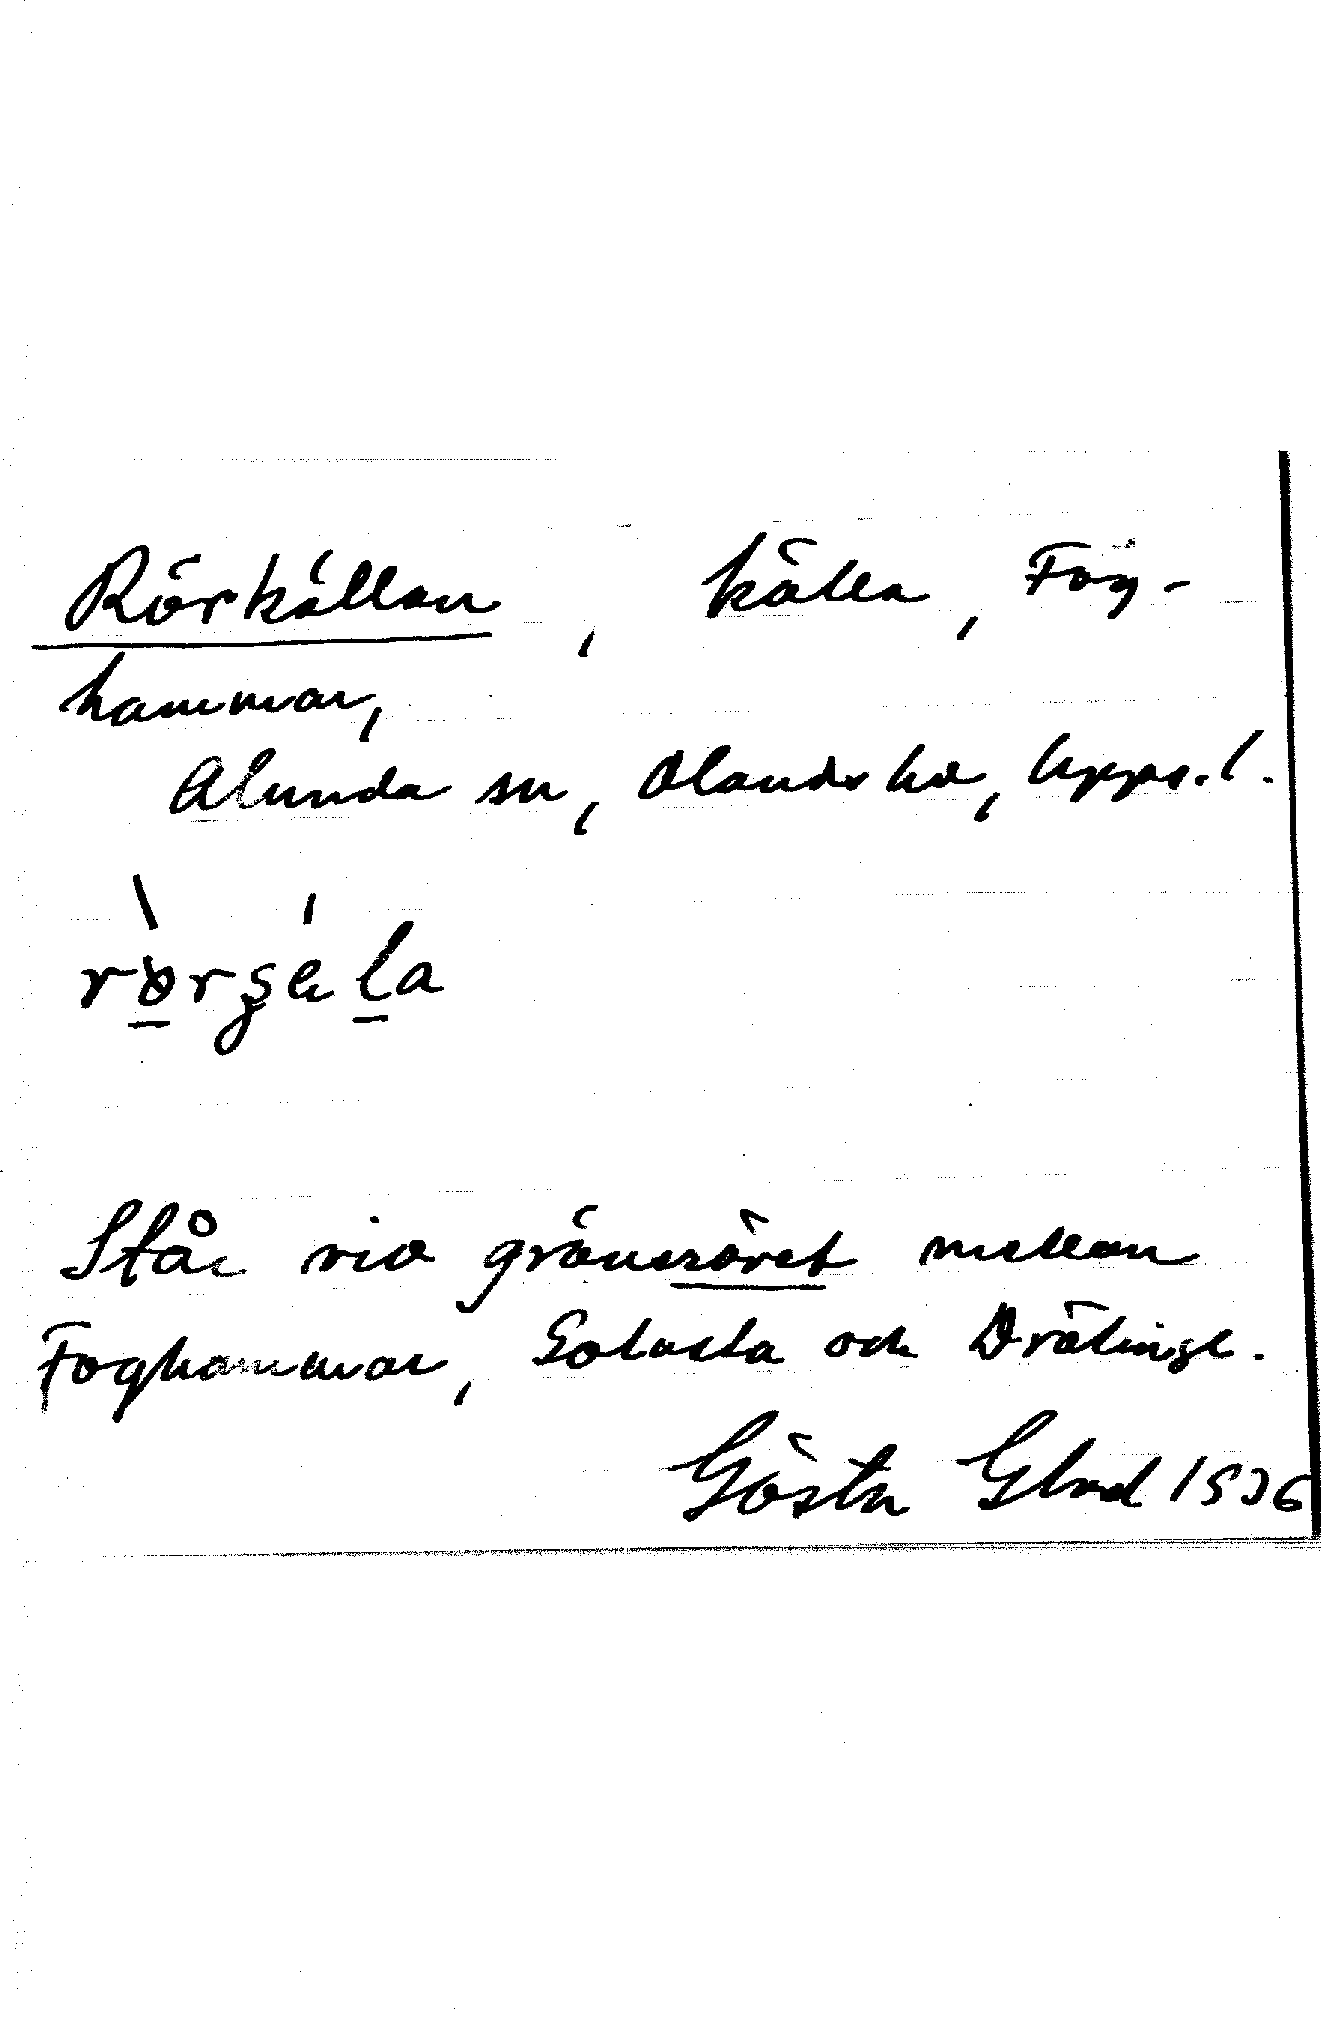 Rörkällan, källa, Fog-
hammar,
Alunda sn, Olands hd, Upps. l.
Står vid gränsröret mellan
Foghammar, Golvsta och Drälinge.
Gösta Glad 1936